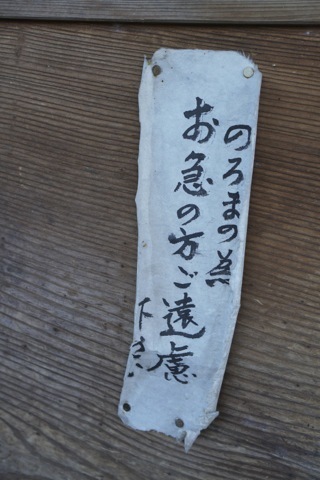 のろまの為
お急の方ご遠慮
下さい